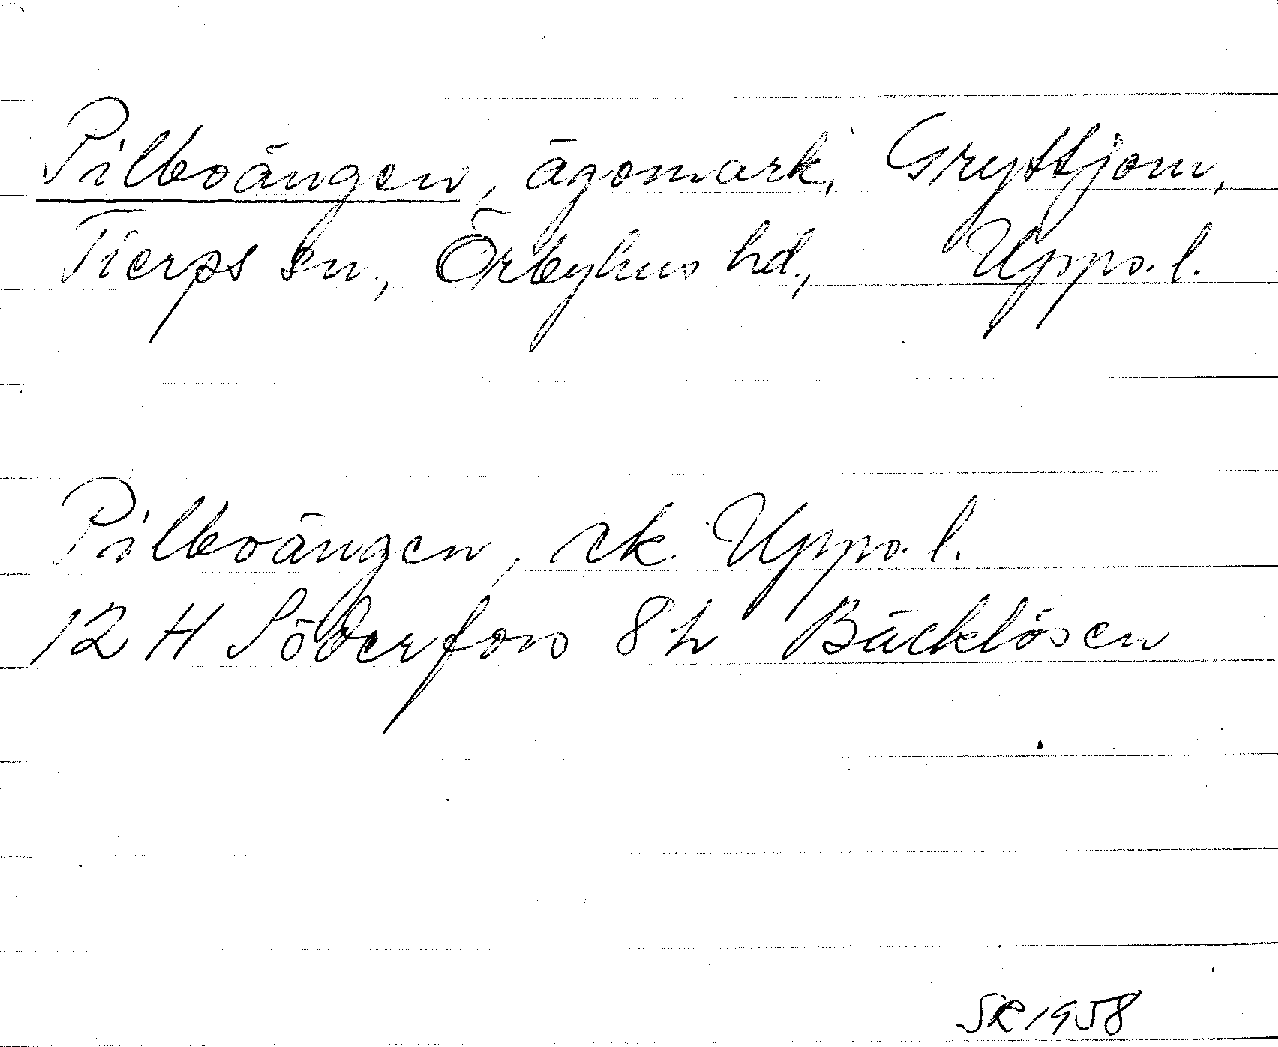 Pilboängen, ägomark, Gryttjom,
Tierps sn, Örbyhus hd., Upps.l.
Pilboängen, ek. Upps. l.
12 H Söderfors 8 h Bäcklösen
SR 1958